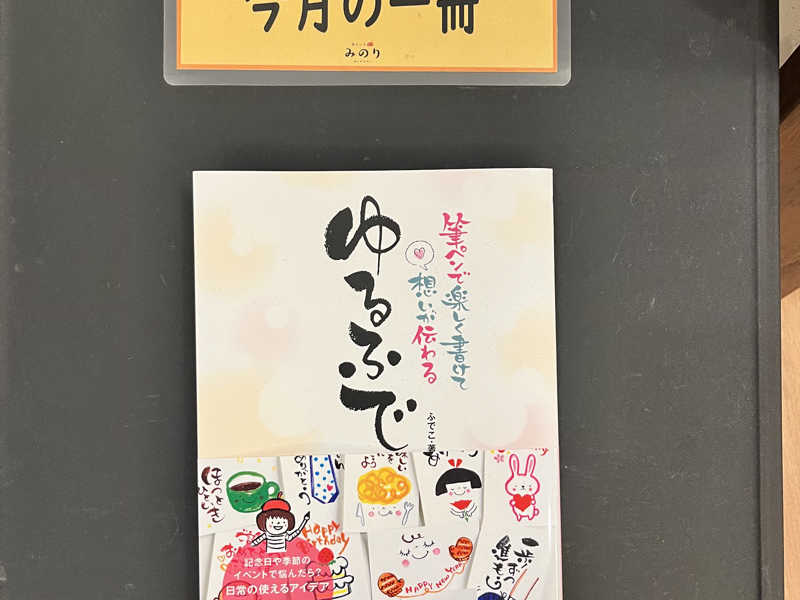 今月の一冊
みのり
筆ペンで楽しく書けて
想いが伝わる
ゆるふで
ふでこ・著
ほっと
ひといき
ありがとう
Happy
Birthday
HAPPY NEW YEAR
一歩ずつ
進もう
記念日や季節の
イベントで悩んだら?
日常の使えるアイデア